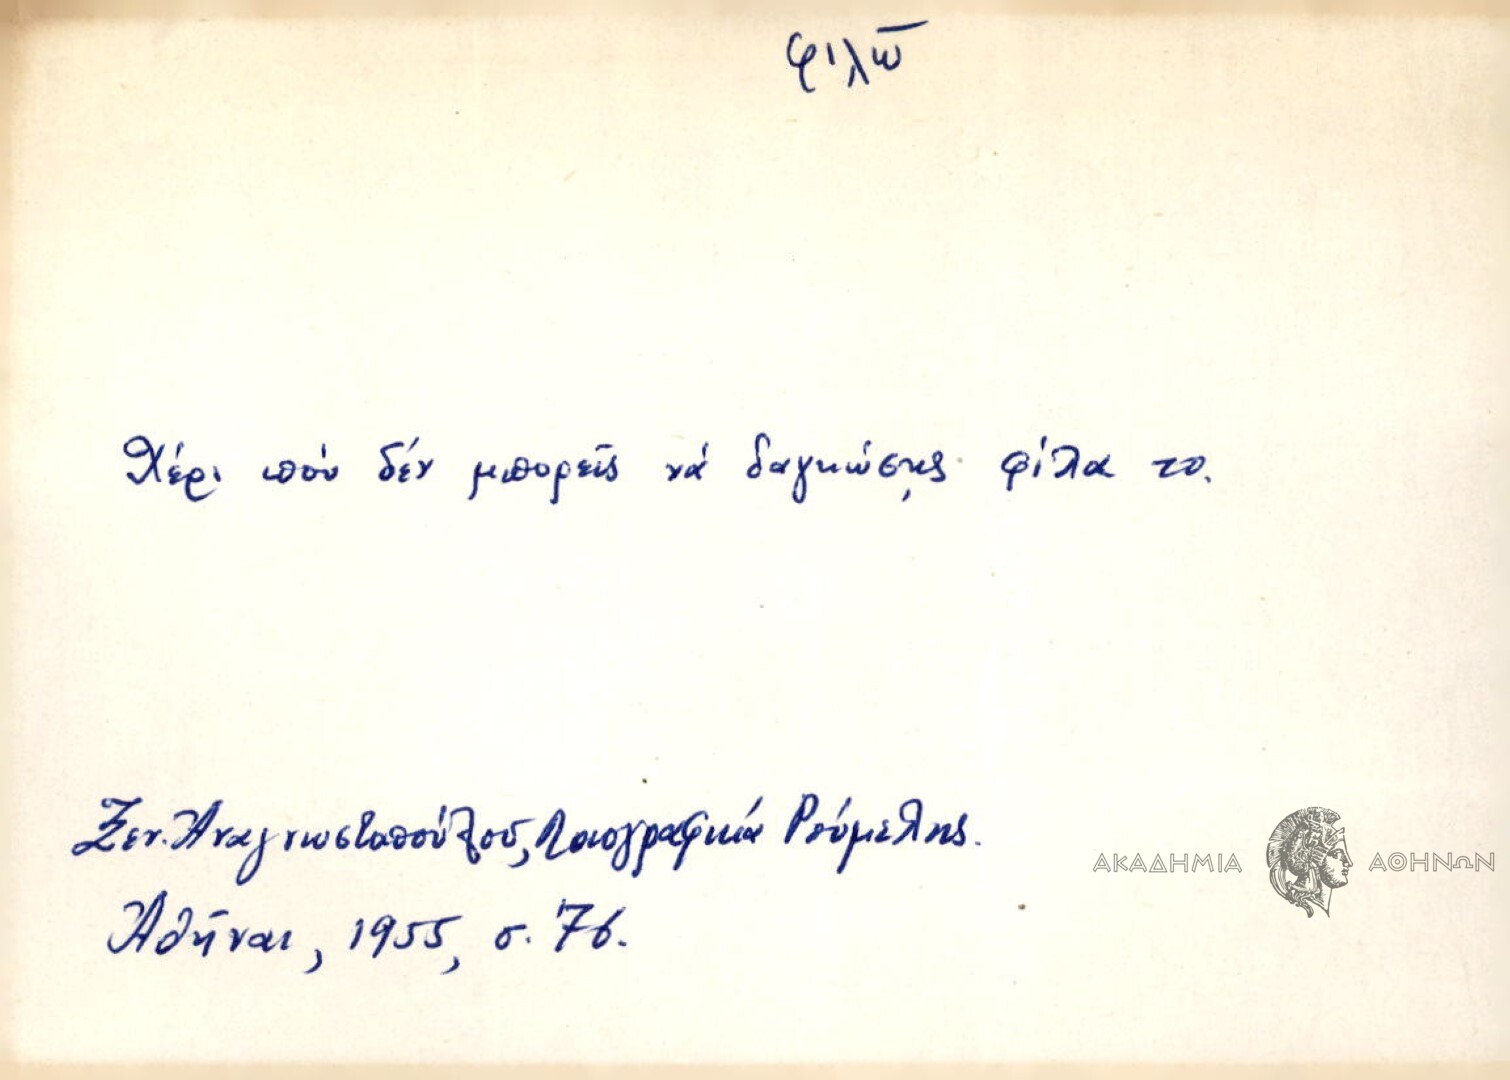 φιλῶ
Χέρι πού δέν μπορεῖς νά δαγκώσῃς φίλα το.
Ξεν. Ἀναγνωστοπούλου, Λαογραφικά Ρούμελης.
Ἀθῆναι, 1955, σ. 76.
ΑΚΑΔΗΜΙΑ ΑΘΗΝΩΝ